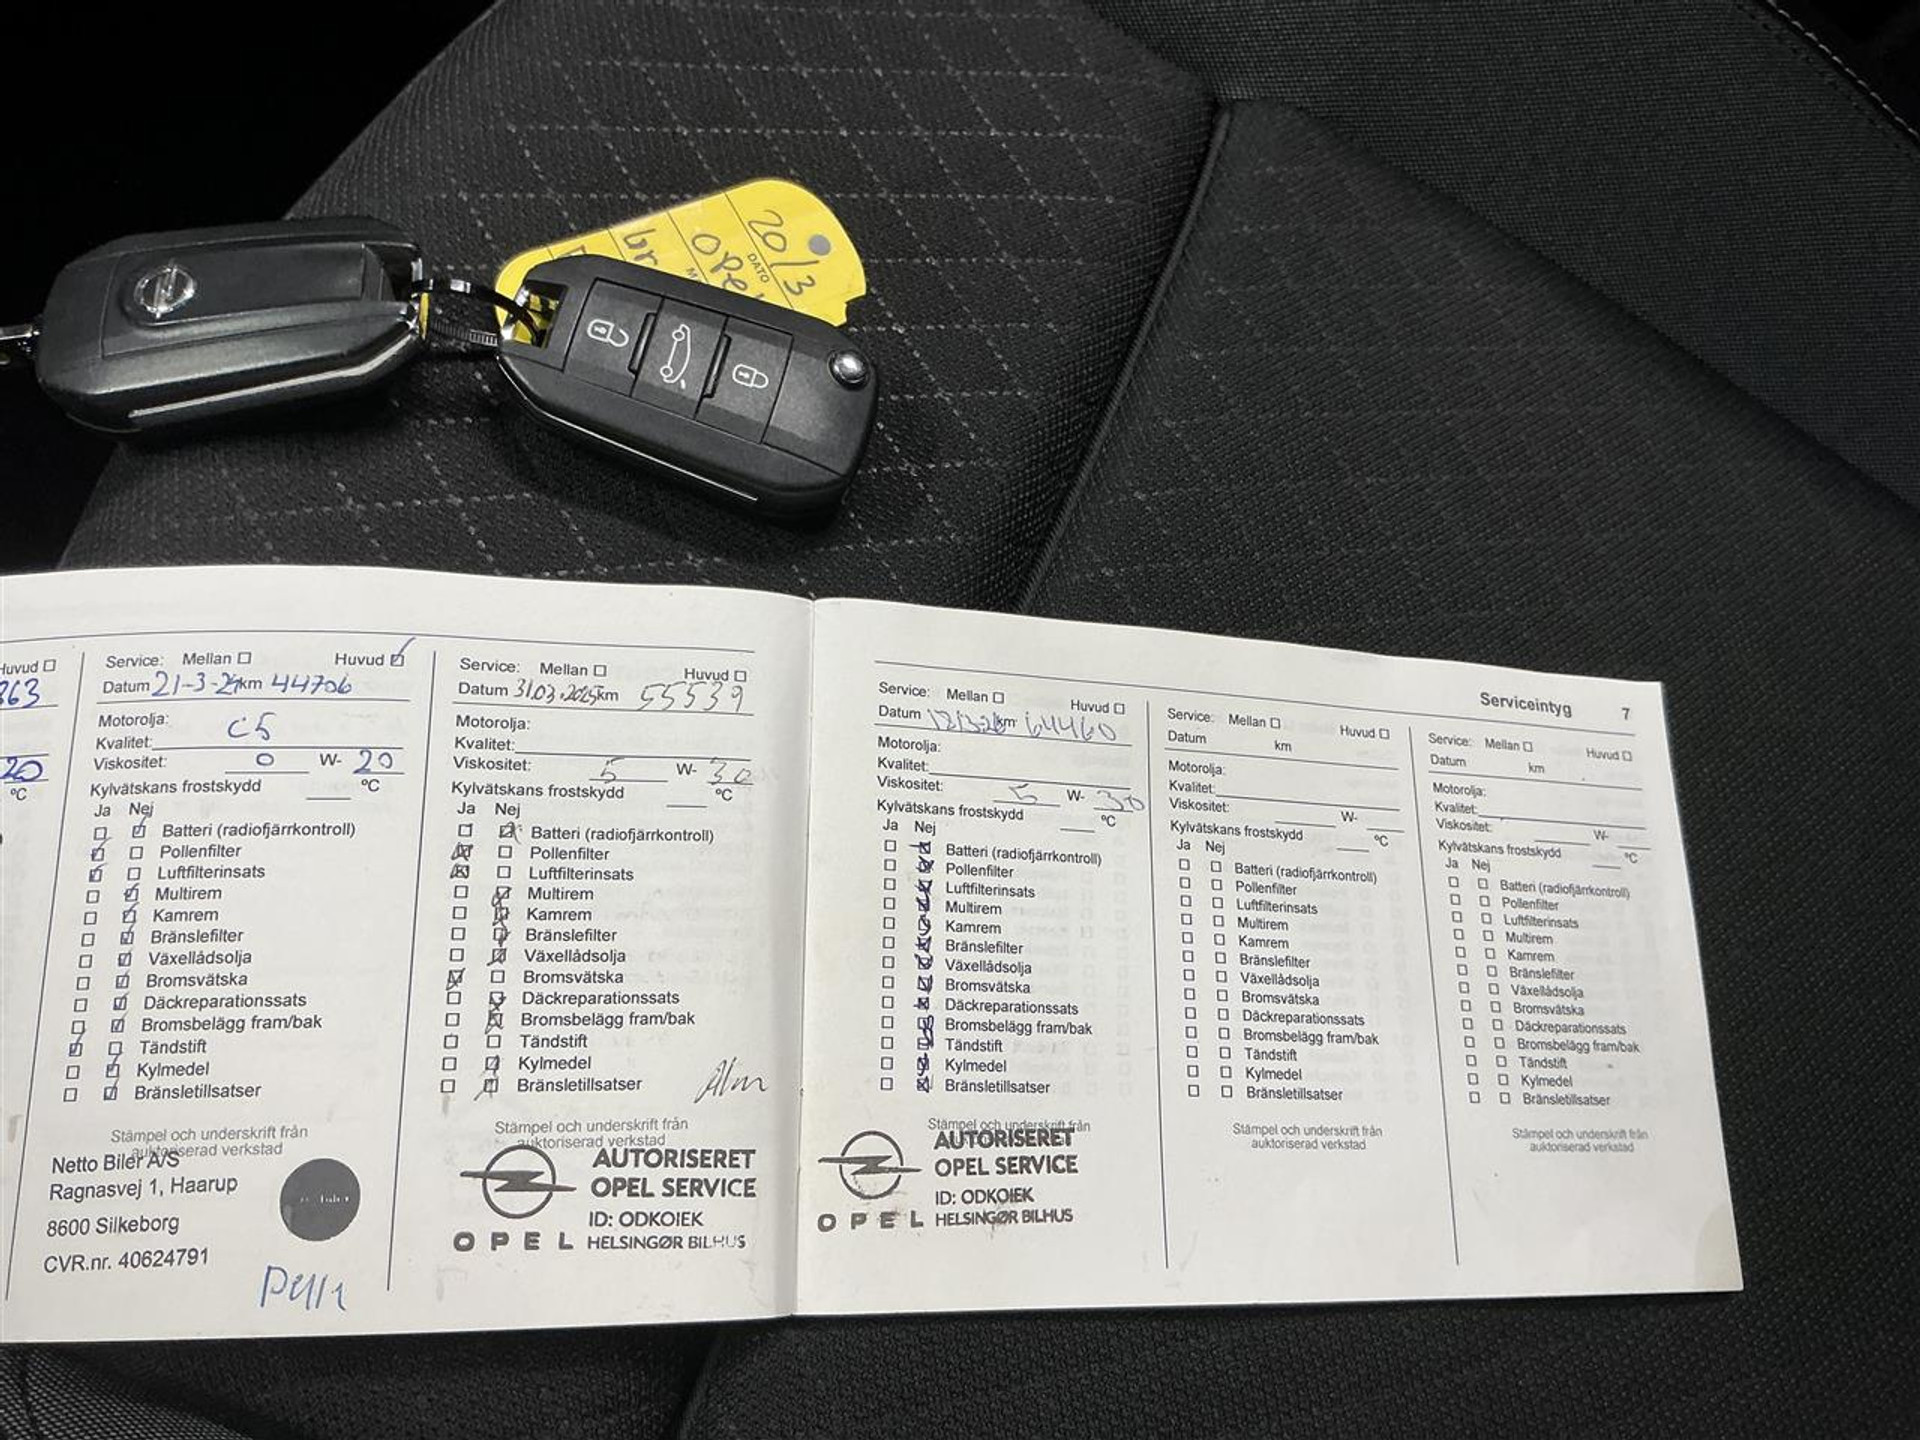 20/3
DATO
Ope
br
M
Huvud
363
20
°C
Service: Mellan Huvud
Datum 21-3-24 km 44706
Motorolja:
Kvalitet: C5
Viskositet: 0 W- 20
Kylvätskans frostskydd °C
Ja Nej
Batteri (radiofjärrkontroll)
Pollenfilter
Luftfilterinsats
Multirem
Kamrem
Bränslefilter
Växellådsolja
Bromsvätska
Däckreparationssats
Bromsbelägg fram/bak
Tändstift
Kylmedel
Bränsletillsatser
Stämpel och underskrift från
auktoriserad verkstad
Netto Biler A/S
Ragnasvej 1, Haarup
8600 Silkeborg
CVR.nr. 40624791
Service: Mellan Huvud
Datum 31.03.2025 km 55539
Motorolja:
Kvalitet:
Viskositet: 5 W- 30
Kylvätskans frostskydd °C
Ja Nej
Batteri (radiofjärrkontroll)
Pollenfilter
Luftfilterinsats
Multirem
Kamrem
Bränslefilter
Växellådsolja
Bromsvätska
Däckreparationssats
Bromsbelägg fram/bak
Tändstift
Kylmedel
Bränsletillsatser
Stämpel och underskrift från
auktoriserad verkstad
AUTORISERET
OPEL SERVICE
ID: ODKOIEK
OPEL HELSINGØR BILHUS
Serviceintyg 7
Service: Mellan Huvud
Datum km 64460
Motorolja:
Kvalitet:
Viskositet: 5 W- 30
Kylvätskans frostskydd °C
Ja Nej
Batteri (radiofjärrkontroll)
Pollenfilter
Luftfilterinsats
Multirem
Kamrem
Bränslefilter
Växellådsolja
Bromsvätska
Däckreparationssats
Bromsbelägg fram/bak
Tändstift
Kylmedel
Bränsletillsatser
Stämpel och underskrift från
AUTORISERET
OPEL SERVICE
ID: ODKOIEK
OPEL HELSINGØR BILHUS
Service: Mellan Huvud
Datum km
Motorolja:
Kvalitet:
Viskositet: W-
Kylvätskans frostskydd °C
Ja Nej
Batteri (radiofjärrkontroll)
Pollenfilter
Luftfilterinsats
Multirem
Kamrem
Bränslefilter
Växellådsolja
Bromsvätska
Däckreparationssats
Bromsbelägg fram/bak
Tändstift
Kylmedel
Bränsletillsatser
Stämpel och underskrift från
auktoriserad verkstad
Service: Mellan Huvud
Datum km
Motorolja:
Kvalitet:
Viskositet: W-
Kylvätskans frostskydd °C
Ja Nej
Batteri (radiofjärrkontroll)
Pollenfilter
Luftfilterinsats
Multirem
Kamrem
Bränslefilter
Växellådsolja
Bromsvätska
Däckreparationssats
Bromsbelägg fram/bak
Tändstift
Kylmedel
Bränsletillsatser
Stämpel och underskrift från
auktoriserad verkstad